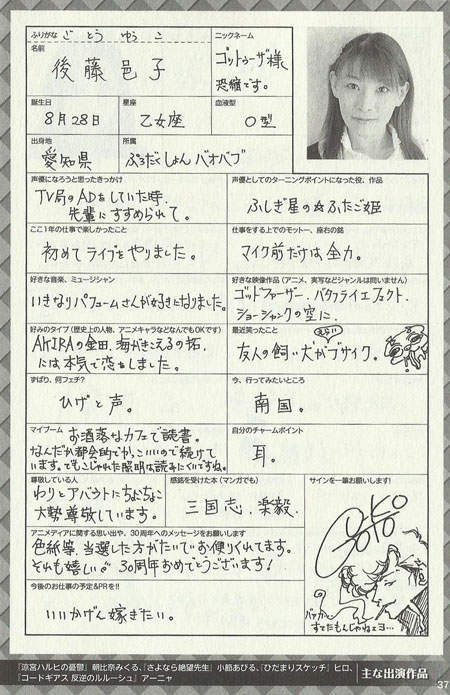 ふりがな ごとう ゆうこ
ニックネーム
名前
後藤邑子
ゴットゥーザ様
恐縮です。
誕生日
星座
血液型
8月28日
乙女座
O型
出身地
所属
愛知県
ぷろだくしょんバオバブ
声優になろうと思ったきっかけ
TV局のADをしていた時、
先輩にすすめられて。
声優としてのターニングポイントになった役、作品
ふしぎ星の☆ふたご姫
ここ1年の仕事で楽しかったこと
初めてライブをやりました。
仕事をする上でのモットー、座右の銘
マイク前だけは全力。
好きな音楽、ミュージシャン
いきなりパフュームさんが好きになりました。
好きな映像作品(アニメ、実写などジャンルは問いません)
ゴットファーザー、バタフライエフェクト、
ショーシャンクの空に、
好みのタイプ(歴史上の人物、アニメキャラなどなんでもOKです)
AKIRAの金田、海がきこえるの拓
には本気で恋をしました。
最近笑ったこと
友人の飼い犬がブサイク。
ずばり、何フェチ?
ひげと声。
今、行ってみたいところ
南国。
マイブーム
お洒落なカフェで読書。
なんだか都会的でかっこいいので続けて
います。でもこじゃれた照明は読みにくいですね。
自分のチャームポイント
耳。
尊敬している人
わりとアバウトにちょこちょこ
大勢尊敬しています。
感銘を受けた本(マンガでも)
三国志、楽毅
サインを一筆お願いします!
アニメディアに関する思い出や、30周年へのメッセージをお願いします
色紙等、当選した方がたいてお便りくれてます。
それも嬉しい 30周年おめでとうございます!
今後のお仕事の予定&PRを!!
いいかげん嫁ぎたい。
すてたもんじゃねェヨ…
『涼宮ハルヒの憂鬱』朝比奈みくる、『さよなら絶望先生』小節あびる、『ひだまりスケッチ』ヒロ、
『コードギアス 反逆のルルーシュ』アーニャ
主な出演作品
37